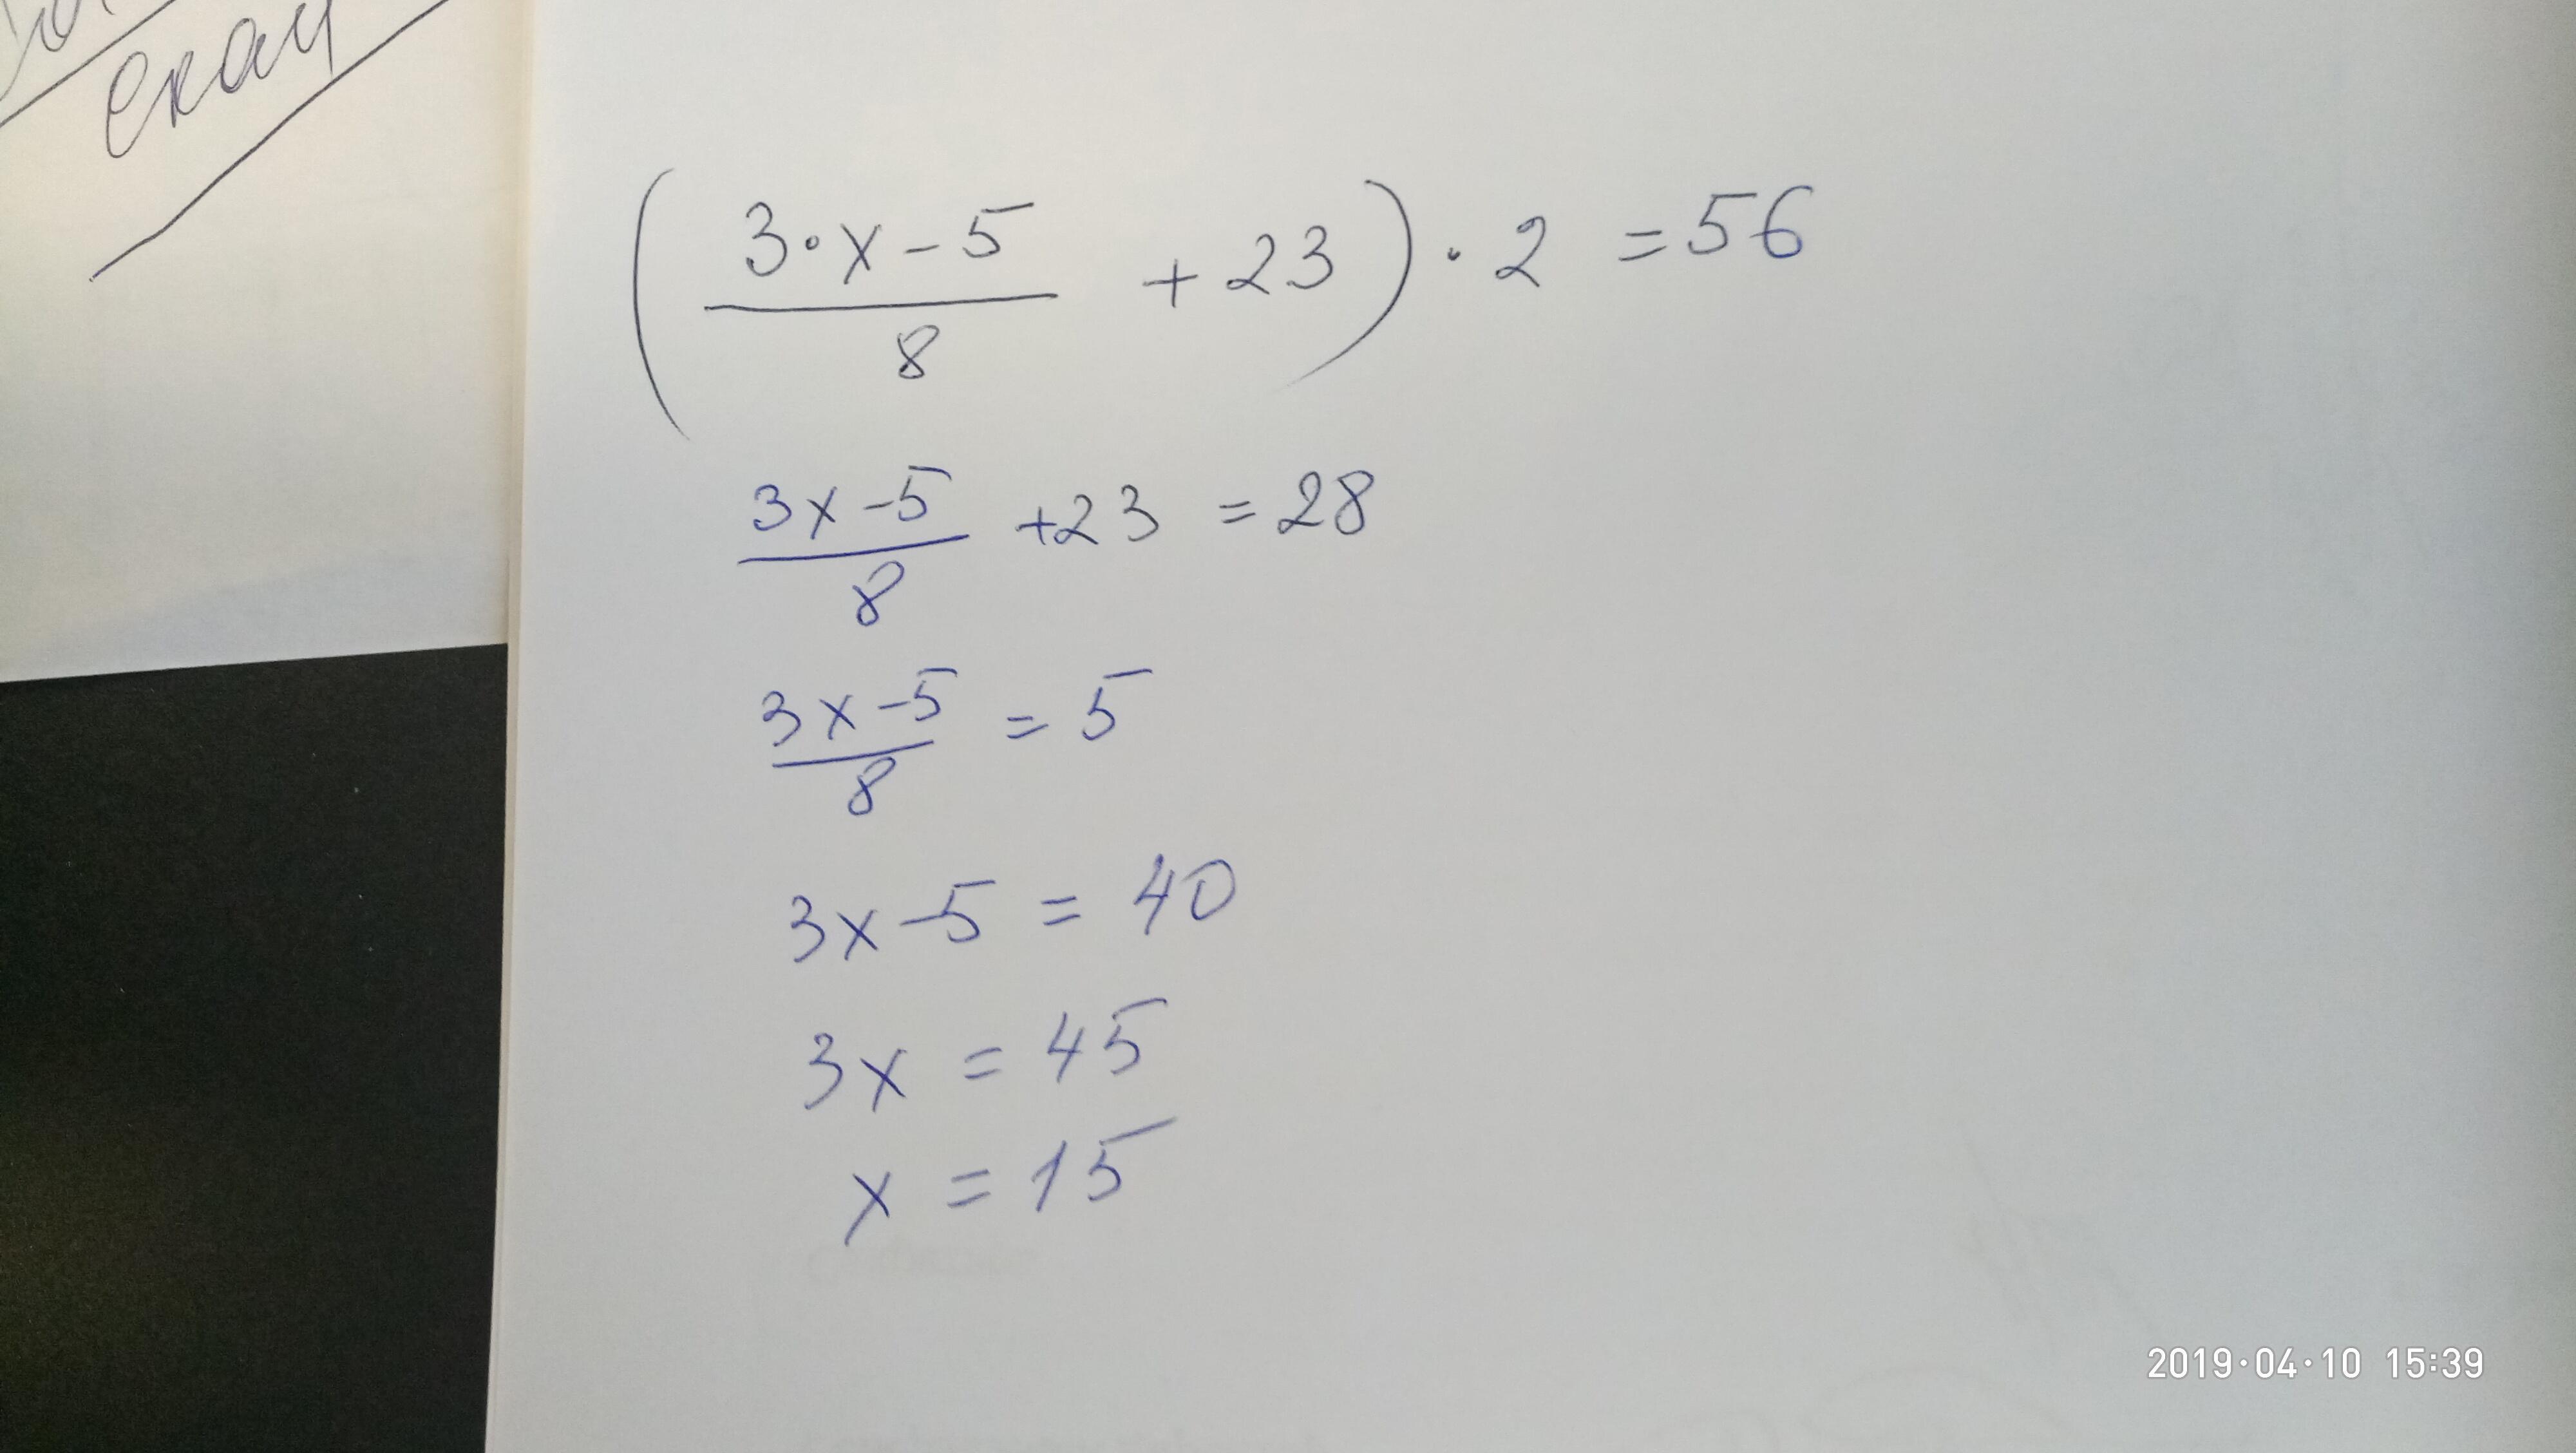 скач
(3·x-5/8 + 23) · 2 = 56
3x-5/8 +23 = 28
3x-5/8 = 5
3x-5 = 40
3x = 45
x = 15
2019·04·10 15:39